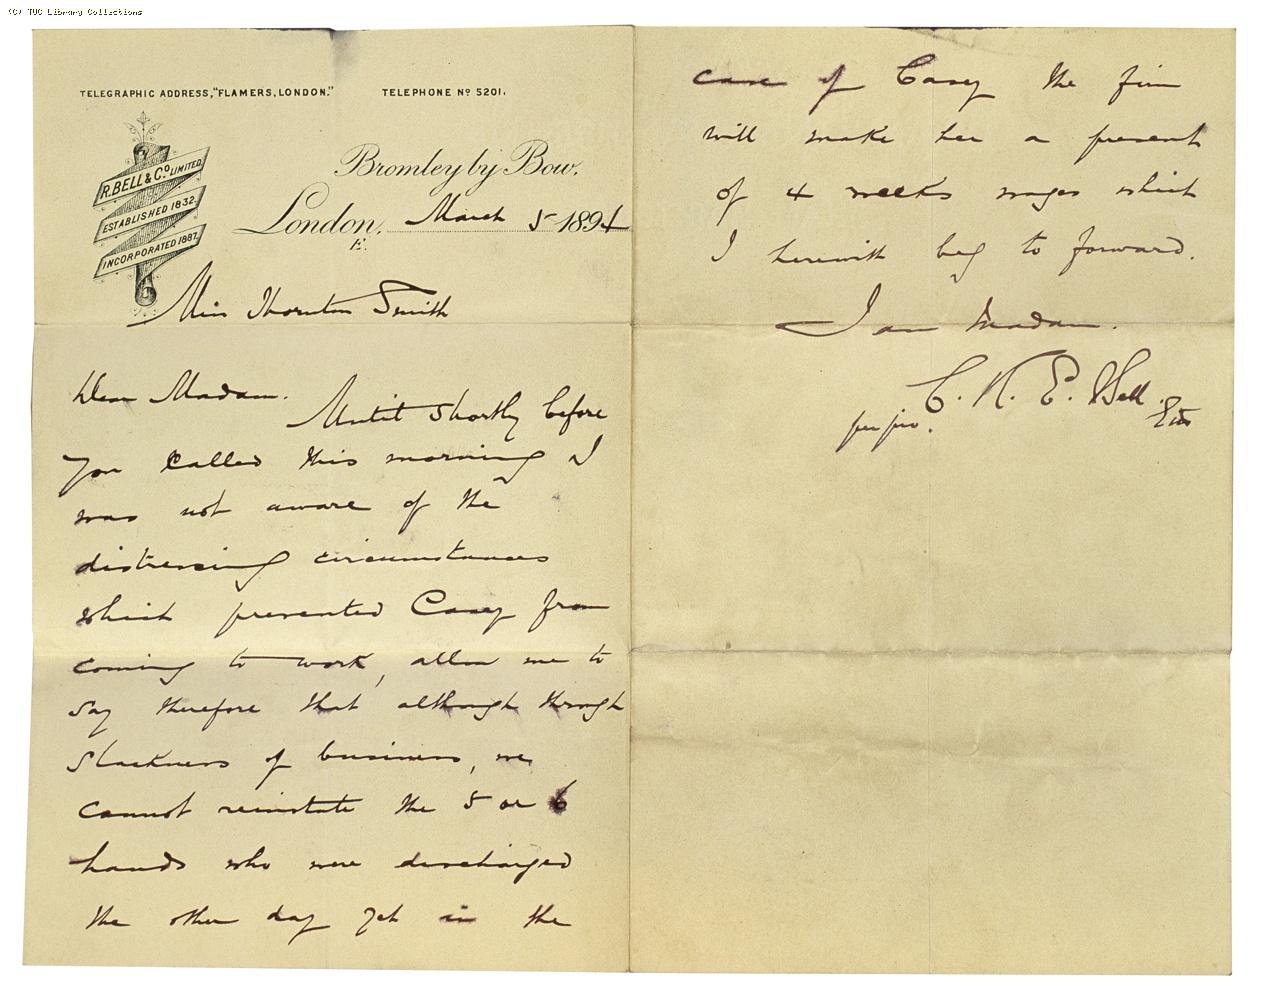 (C) TUC Library Collections
TELEGRAPHIC ADDRESS, "FLAMERS, LONDON."
TELEPHONE Nº 5201.
R. BELL & Cº LIMITED.
ESTABLISHED 1832.
INCORPORATED 1887.
Bromley by Bow,
London, March 5 1894
E.
Miss Thornton Smith
Dear Madam.
Until shortly before
you called this morning I
was not aware of the
distressing circumstances
which prevented Casey from
coming to work, allow me to
say therefore that although through
slackness of business, we
cannot reinstate the 5 or 6
hands who were discharged
the other day yet in the
case of Casey the firm
will make her a present
of 4 weeks wages which
I herewith beg to forward.
I am Madam.
C. R. E. Bell
per pro.